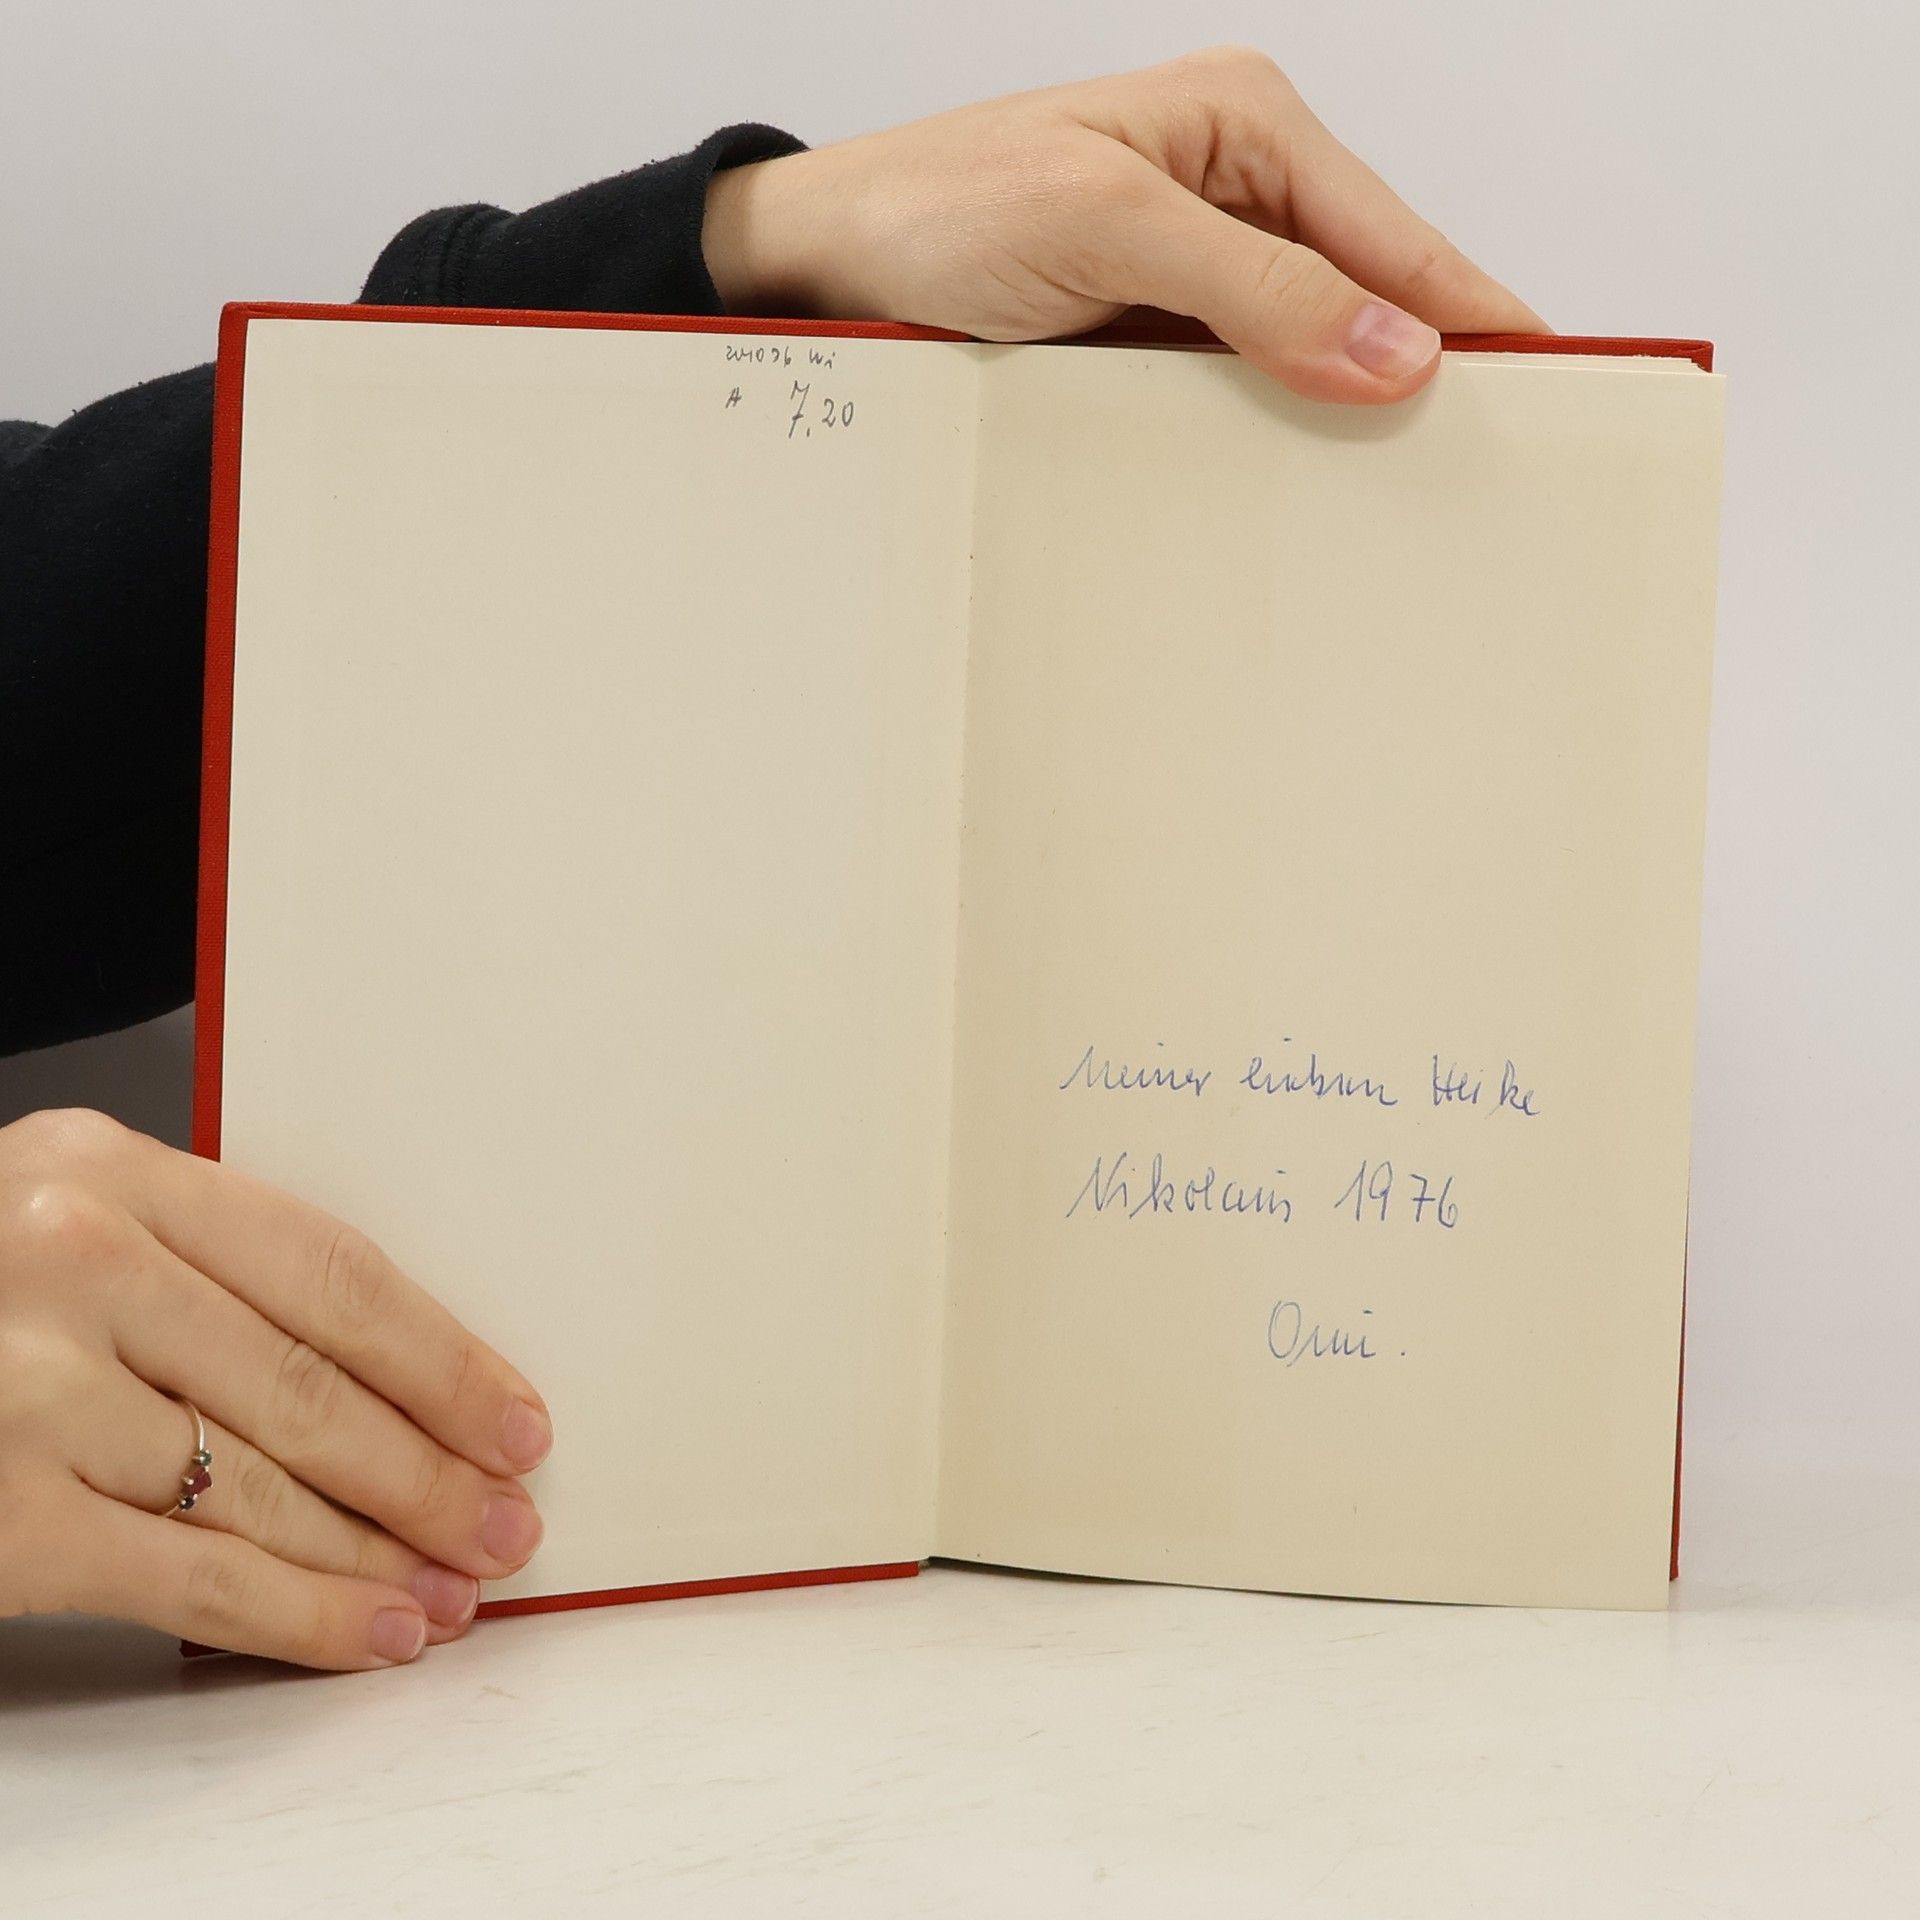 A 7.20
Meiner lieben Heike
Nikolaus 1976
Omi.